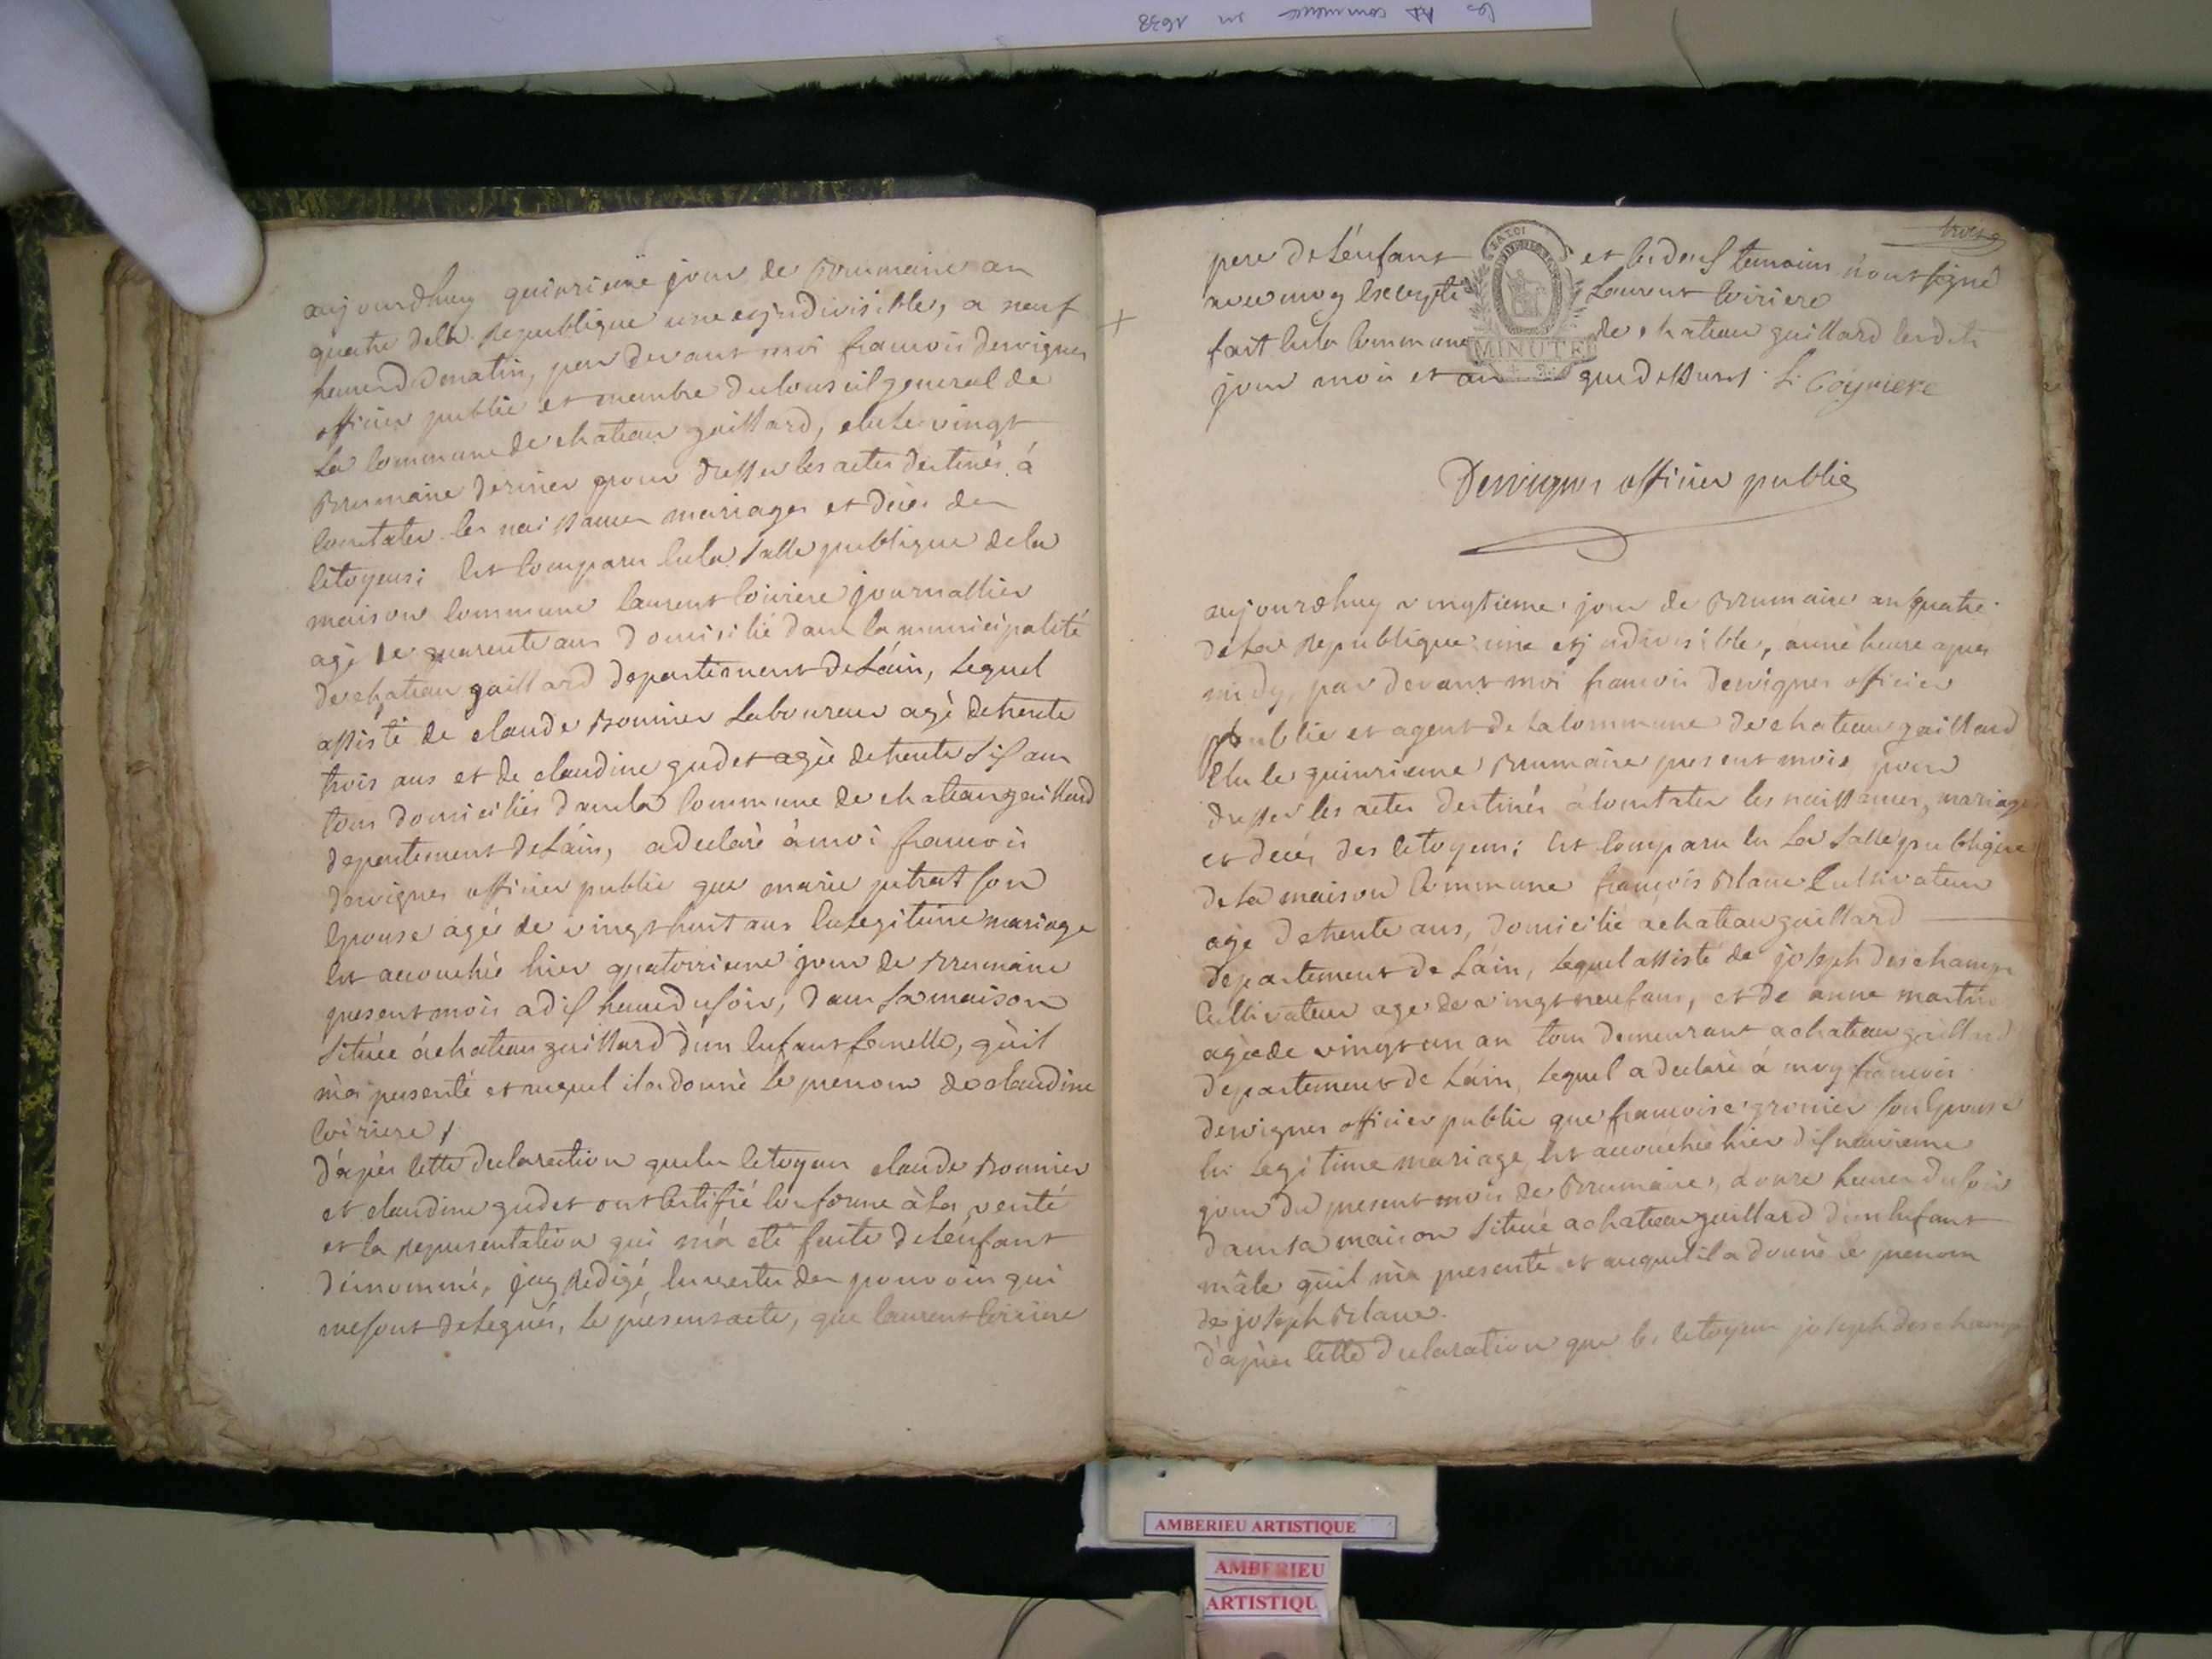 les commence en 1638
aujourdhuy quinzieme jour de Brumaire an
quatre dela Republique une et jndivisible, a neuf
heures du matin, par devant moi francois Dervignes
officier public et membre du conseil general de
la commune de chateau gaillard, elu le vingt
Brumaire dernier pour dresser les actes destinés à
constater les naissances mariages et décès des
citoyens; est comparu en la salle publique de la
maison commune laurent Coiriere journallier
agé de quarente ans domisilié dans la municipalité
de chateau gaillard departement de L'ain, lequel
assisté de claude Bonnier Laboureur agé de trente
trois ans et de claudine gudet agée de trente sis ans
tous domiciliés dans la commune de chateau gaillard
departement de L'ain, a declaré à moi francois
dervignes officier public que marie putrat son
epouse agée de vingt huit ans en legitime mariage
est accouchée hier quatorzieme jour de Brumaire
present mois a dis heures du soir, dans sa maison
située à chateau gaillard d'un enfant femelle, qu'il
m'a presenté et auquel il a donné le prénom de claudine
Coiriere /
d'apres cette declaration que les citoyens claude Bonnier
et claudine gudet ont certifié conforme à la verité
et la representation qui m'a été faite de l'enfant
dénommé, j'ay redigé, en vertu des pouvoirs qui
me sont delegués, le présent acte, que laurent Coiriere
trois
pere de L'enfant et les deux temoins n'ont signé
avec moy excepté Laurent Coiriere
fait en la commune de chateau gaillard lesdits
jour mois et an que dessus L. Coyriere
LA LOI
MINUTE
Dervignes officier public
aujourdhuy vingtieme jour de Brumaire an quatre
de la Republique une et jndivisible, a une heure apres
midy, par devant moi francois dervignes officier
public et agent de la commune de chateau gaillard
Elu le quinzieme Brumaire present mois pour
dresser les actes destinés à constater les naissances, mariages
et decés des citoyens; est comparu en la salle publique
de la maison commune francois Blanc cultivateur
agé de trente ans, domicilié a chateau gaillard
departement de L'ain, lequel assisté de joseph deschamps
cultivateur agé de vingt neuf ans, et de anne martin
agée de vingt un an tous demeurant a chateau gaillard
departement de L'ain, lequel a declaré à moy francois
dervignes officier public que francoise gronier son epouse
en legitime mariage, est accouchée hier dis neuvieme
jour du present mois de Brumaire, a onze heures du soir
dans sa maison située a chateau gaillard d'un enfant
mâle qu'il m'a presenté et auquel il a donné le prenom
de joseph Blanc.
d'après cette declaration que les citoyens joseph deschamps
AMBERIEU ARTISTIQUE
AMBERIEU
ARTISTIQU